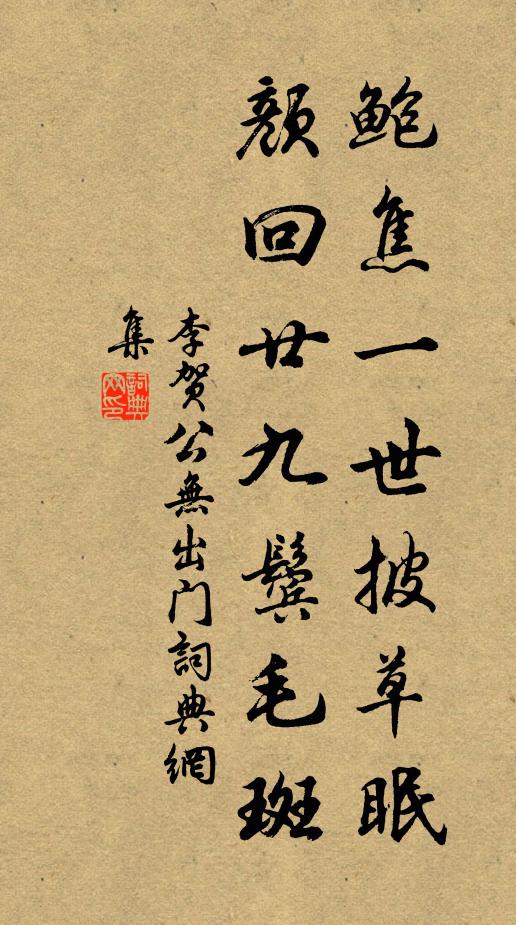 鲍焦一世披草眠
颜回廿九鬓毛斑
李贺公無出门詞典網
集
詞典網印